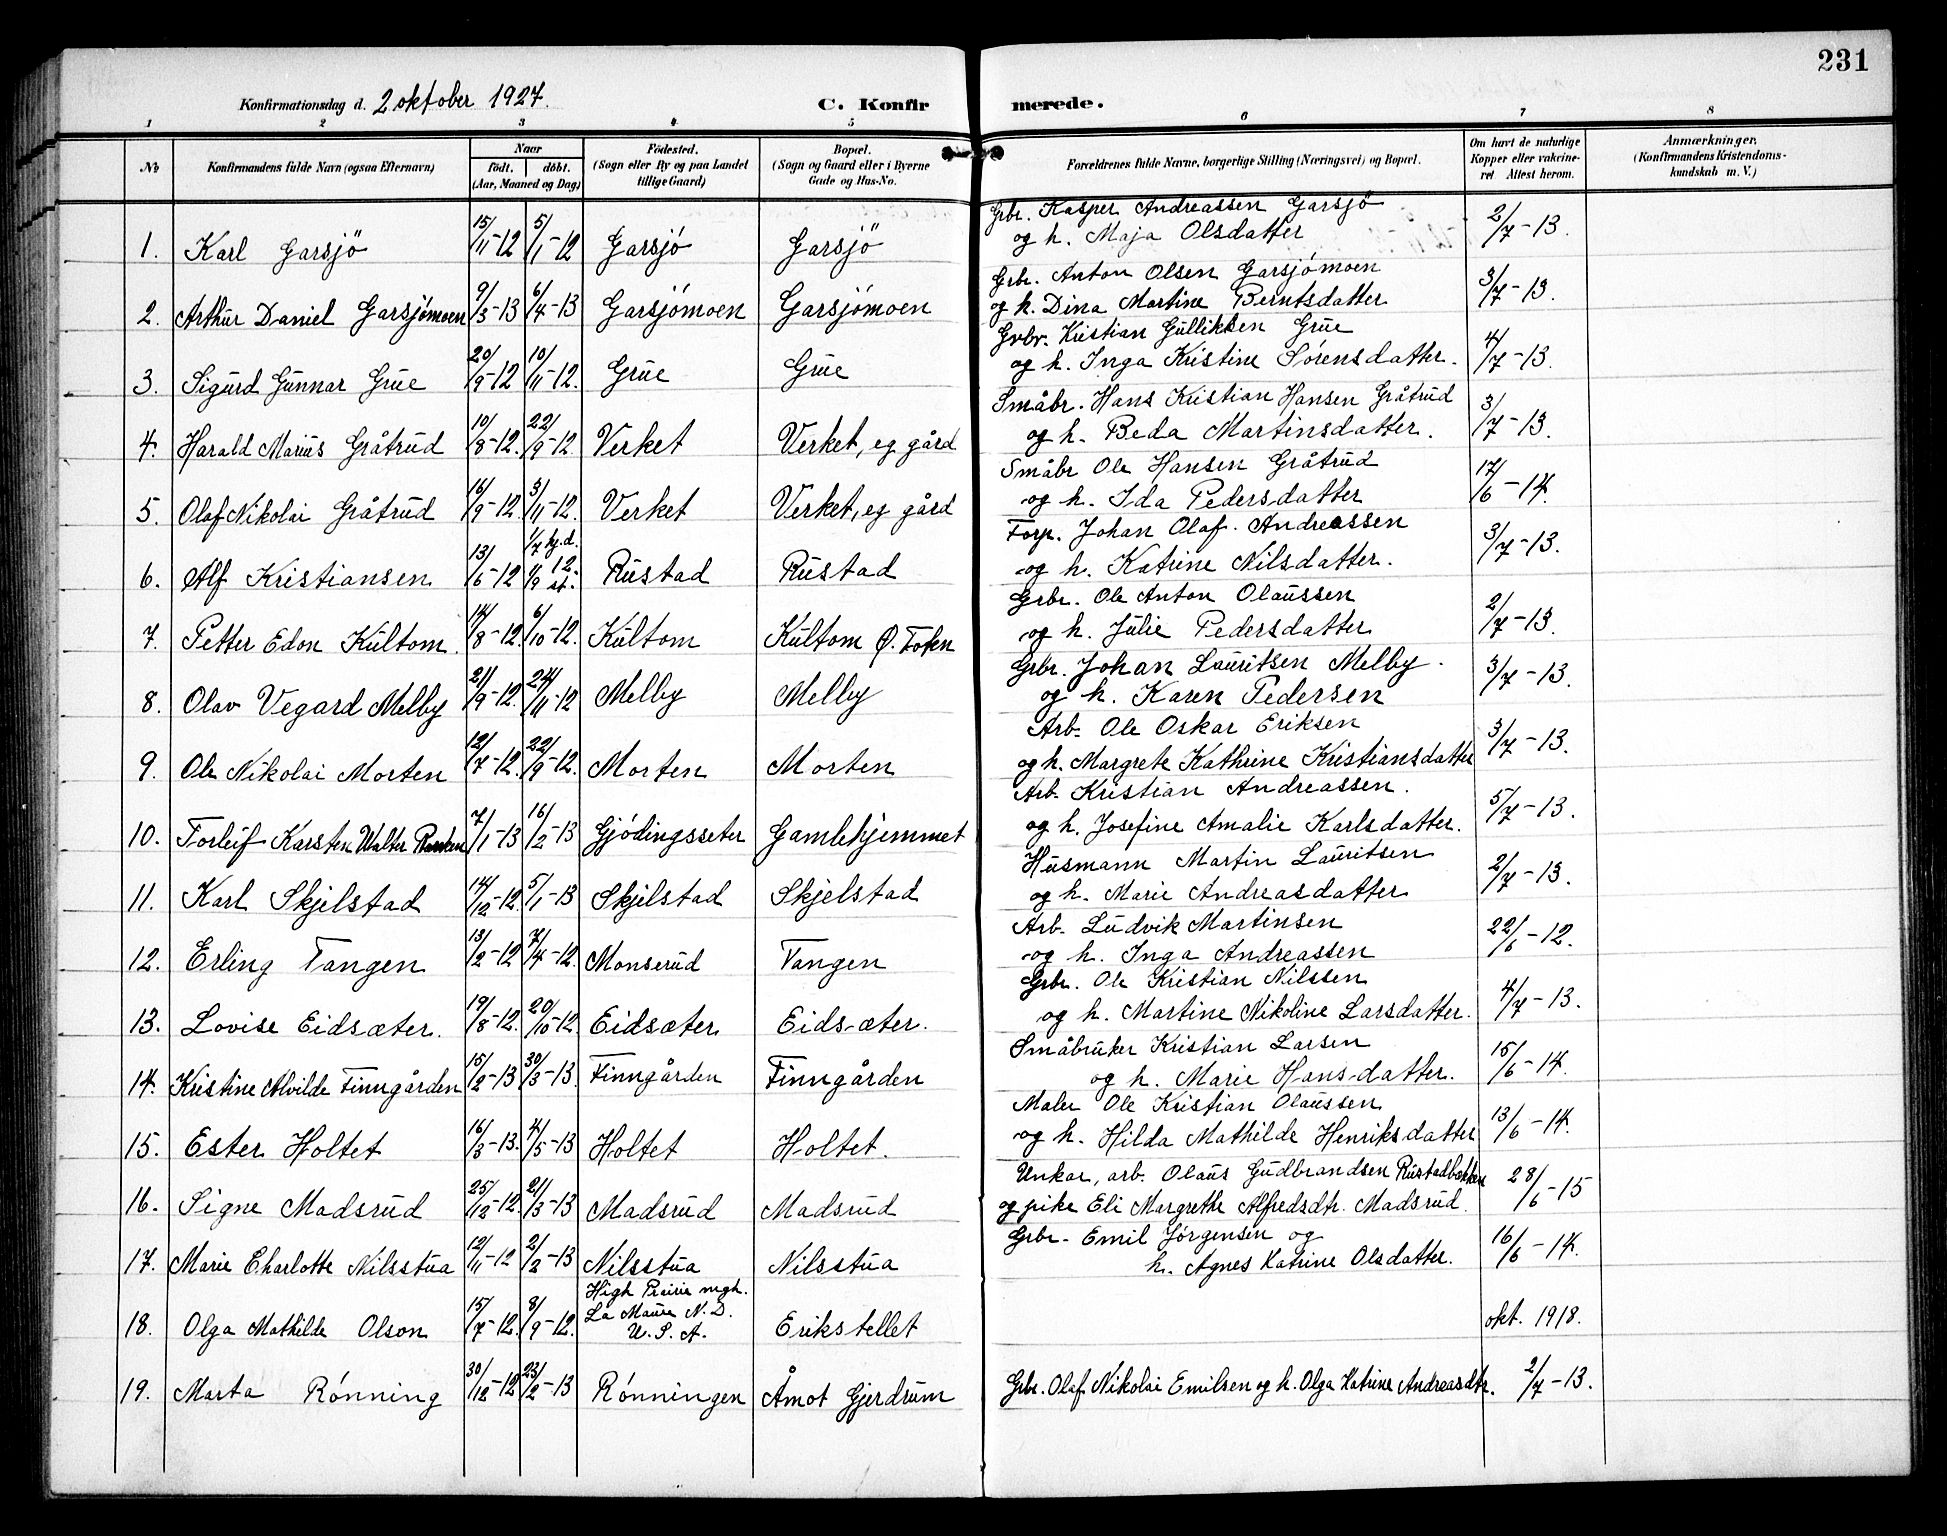 231
Konfirmationsdag d. 2 oktober 1927. C. Konfirmerede.
1 2 3 4 5 6 7 8
No Konfirmandens fulde Navn (ogsaa Efternavn) Naar født. døbt. (Aar, Maaned og Dag) Fødested. (Sogn eller By og paa Landet tillige Gaard) Bopæl. (Sogn og Gaard eller i Byerne Gade og Hus-No. Forældrenes fulde Navne, borgerlige Stilling (Næringsvei) og Bopæl. Om havt de naturlige Kopper eller vakcineret Attest herom. Anmærkninger. (Konfirmandens Kristendomskundskab m. V.)
1. Karl Garsjö 15/11-12 5/1-12 Garsjö Garsjö Grbr. Kasper Andreassen Garsjö
og h. Maja Olsdatter 2/7-13.
2. Arthur Daniel Garsjömoen 9/3-13 6/4-13 Garsjómoen Garsjómoen Grbr. Anton Olsen Garsjómoen
og h. Dina Martine Berntsdatter 3/7-13.
3. Sigurd Gunnar Grue 20/9-12 10/11-12. Grue Grue Grbr. Kristian Gulliksen Grue
og h. Inga Kristine Sørensdatter. 4/7-13.
4. Harald Marius Gråtrud 10/8-12. 22/9-12. Verket Verket, eg gård Småbr. Hans Kristian Hansen Gråtrud
og h. Beda Martinsdatter. 3/7-13.
5. Olaf Nikolai Gråtrud 16/9-12. 3/11-12. Verket Verket, eg gård Småbr Ole Hansen Gråtrud
og h. Ida Pedersdatter 17/6-14.
6. Alf Kristiansen 13/6-12 1/7 hj.d. 1/9 12. st. Rustad Rustad Forp. Johan Olaf Andreassen
og h. Katrine Nilsdatter. 3/7-13.
7. Petter Edon Kultom. 14/8-12. 6/10-12. Kultom Kultom Ø. Toten Grbr. Ole Anton Olaussen
og h. Julie Pedersdatter 2/7-13.
8. Olav Vegard Melby 21/9-12. 24/11-12 Melby Melby Grbr. Johan Lauritsen Melby
og h. Karen Pedersen 3/7-13.
9. Ole Nikolai Morten 12/7-12. 22/9-12. Morten Morten Arb. Ole Oskar Eriksen
og h. Margrete Kathrine Kristiansdatter 3/7-13.
10. Torleif Karsten Walter 7/1-13 16/2-13 Gjödingsseter Gamlehjemmet Arb. Kristian Andreassen.
og h. Josefine Amalie Karlsdatter. 5/7-13.
11. Karl Skjelstad 14/12-12. 5/1-13 Skjelstad Skjelstad Husmann Martin Lauritsen
og h. Marie Andreasdatter 2/7-13.
12. Erling Tangen 13/2-12 7/4-12. Monserud Tangen Arb. Ludvik Martinsen
og h. Inga Andreassen 22/6-12.
13. Lovise Eidsæter. 19/8-12. 20/10-12. Eidsæter Eidsæter. Grbr. Ole Kristian Nilssen
og h. Martine Nikoline Larsdatter. 4/7-13.
14. Kristine Alvilde Finngården 15/2-13 30/3-13. Finngården Finngården Småbruker Kristian Larsen
og h. Marie Hansdatter. 15/6-14.
15. Ester Holtet 16/3-13. 4/5-13 Holtet Holtet. Maler Ole Kristian Olaussen
og h. Hilda Mathilde Henriksdatter 13/6-14.
16. Signe Madsrud 25/12-12. 21/3-13 Madsrud Madsrud Unkar, arb. Olaus Gudbrandsen Rustadbakken
og pike Eli Margrethe Alfredsdtr. Madsrud. 28/6-15
17. Marie Charlotte Nilsstua 12/11-12 2/2-13 Nilsstua Nilsstua Grbr. Emil Jörgensen og
h. Agnes Katrine Olsdatter. 16/6-14.
18. Olga Mathilde Olson 15/7-12. 8/9-12. High Prairie mgh.
La Maure N. D.
U. S. A. Erikstellet okt. 1918.
19. Marta Rónning 30/12-12 23/2-13 Rónningen Åmot Gjerdrum Grbr. Olaf Nikolai Emilsen og h. Olga Katrine Andreasdtr. 2/7-13.